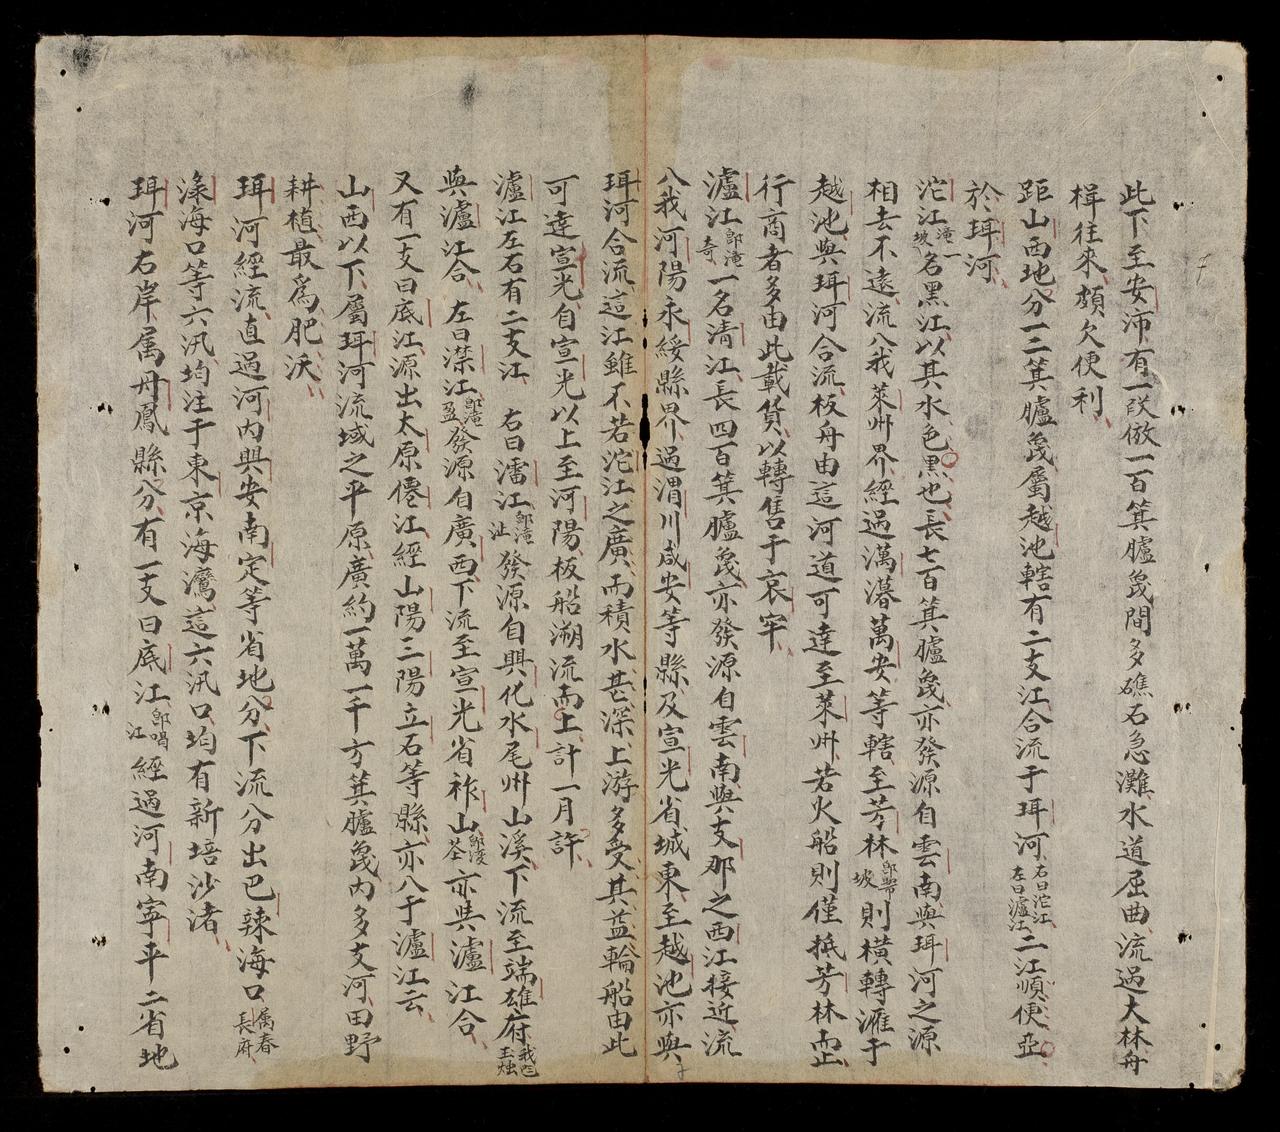 此下至安沛有一段倣一百箕臚㡬間多礁石急灘水道屈曲流過大林舟
楫往來頗欠便利
距山西地分一二箕臚㡬屬越池轄有二支江合流于珥河右曰沱江左曰瀘江二江順便亞
於珥河
沱江滝坡一名黑江以其水色黑也長七百箕臚㡬亦發源自雲南與珥河之源
相去不遠流入我萊州界經過萬安等轄至芳林則橫轉灕于
越池與珥河合流板舟由這河道可達至萊州若火船則僅抵芳林而止
行商者多由此載貨以轉售于哀牢
瀘江即滝奇一名清江長四百箕臚㡬亦發源自雲南與支那之西江接近流
入我河陽永綏縣界過渭川咸安等縣及宣光省城東至越池亦與
珥河合流這江雖不若沱江之廣而積水甚深上游多受其益輪船由此
可達宣光自宣光以上至河陽板船溯流而上計一月許
瀘江左右有二支江 右曰潘江即滝沚發源自興化水尾州山溪下流至端雄府
與瀘江合 左曰濼江即滝盈發源自廣西下流至宣光省祚山亦與瀘江合
又有一支曰底江源出太原儒江經山陽三陽立石等縣亦入于瀘江云
山西以下屬珥河流域之平原廣約一萬一千方箕臚㡬內多支河田野
耕植最爲肥沃
珥河經流直過河內興安南定等省地分下流分出巴辣海口屬春長府
濠海口等六汛均注于東京海灣這六汛口均有新培沙渚
珥河右岸属丹鳳縣分有一支曰底江即喝江經過河南寧平二省地